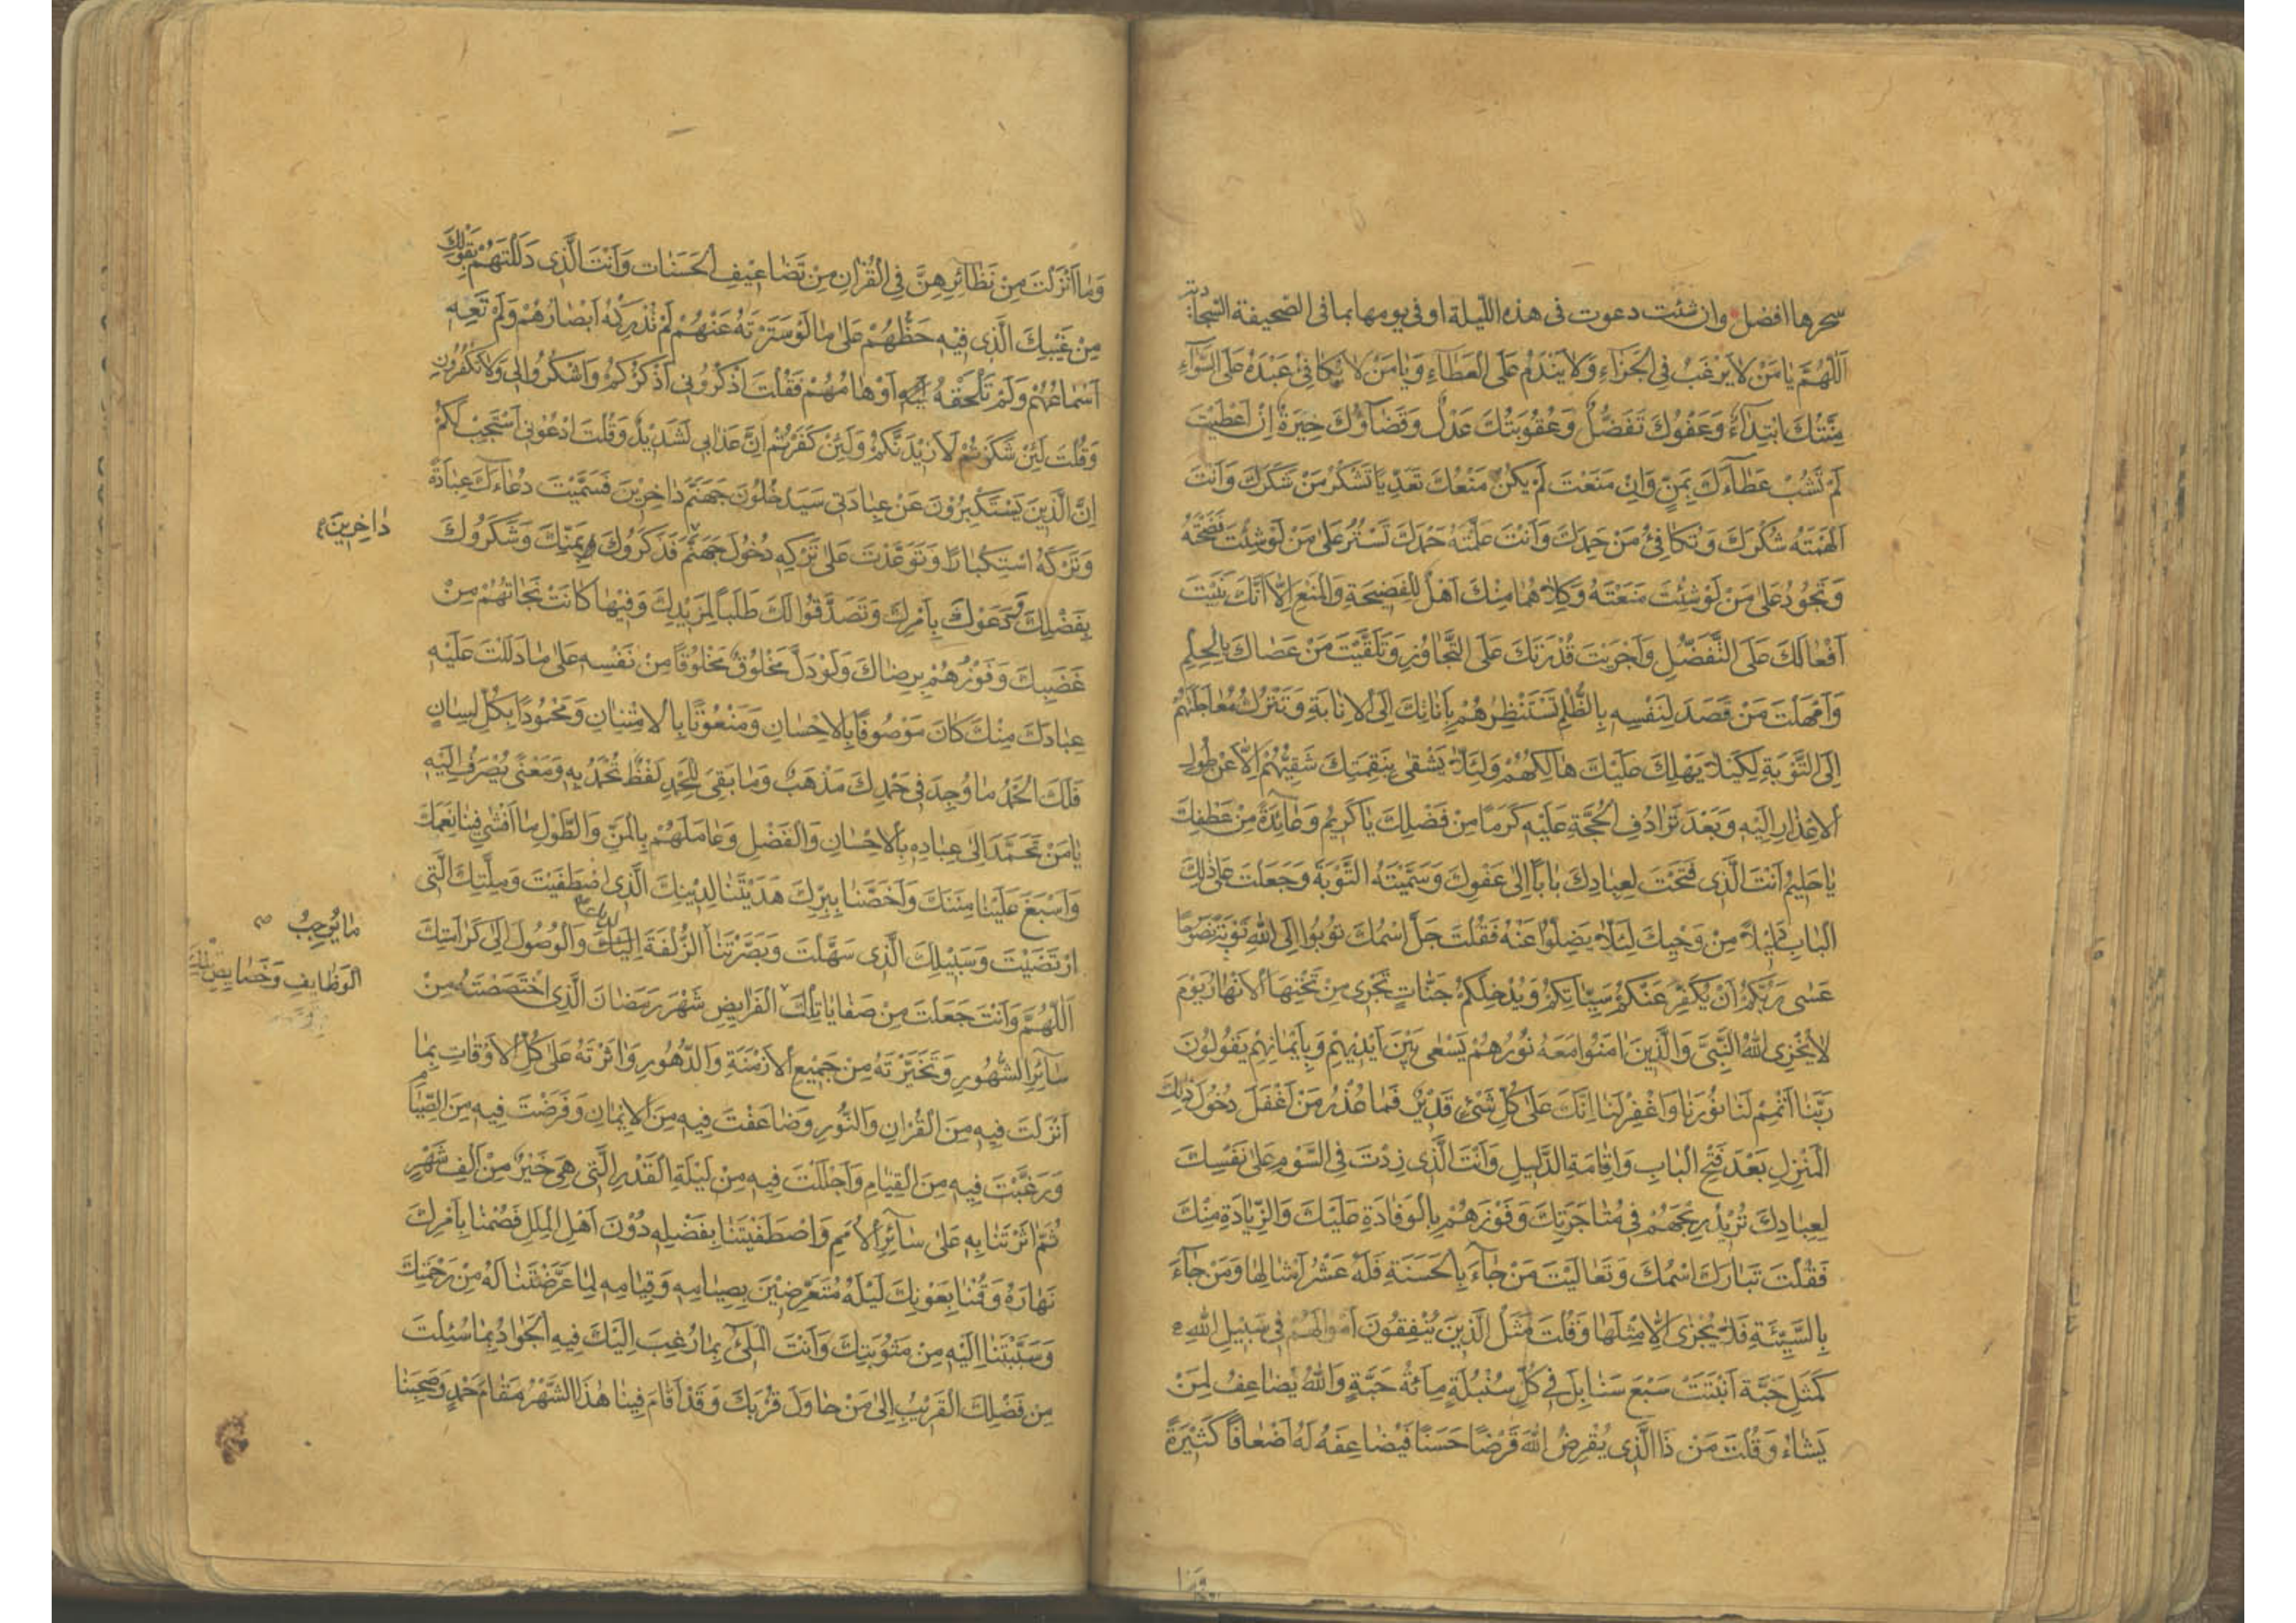 سحرها افضل وان شئت دعوت فى هذه الليلة او فى يومها بما فى الصحيفة السجادية
اَللّٰهُمَّ يَا مَنْ لَا يَرْغَبُ فِى الْجَزَآءِ وَلَا يَنْدَمُ عَلَى الْعَطَآءِ وَيَا مَنْ لَا يُكَافِئُ عَبْدَهُ عَلَى السَّوَآءِ
مِنَّتُكَ ابْتِدَآءٌ وَعَفْوُكَ تَفَضُّلٌ وَعُقُوبَتُكَ عَدْلٌ وَقَضَآؤُكَ خِيَرَةٌ اِنْ اَعْطَيْتَ
لَمْ تَشُبْ عَطَآءَكَ بِمَنٍّ وَاِنْ مَنَعْتَ لَمْ يَكُنْ مَنْعُكَ تَعَدِّيًا تَشْكُرُ مَنْ شَكَرَكَ وَاَنْتَ
اَلْهَمْتَهُ شُكْرَكَ وَتُكَافِئُ مَنْ حَمِدَكَ وَاَنْتَ عَلَّمْتَهُ حَمْدَكَ تَسْتُرُ عَلٰى مَنْ لَوْ شِئْتَ فَضَحْتَهُ
وَتَجُودُ عَلٰى مَنْ لَوْ شِئْتَ مَنَعْتَهُ وَكِلَاهُمَا مِنْكَ اَهْلٌ لِلْفَضِيحَةِ وَالْمَنْعِ اِلَّا اَنَّكَ بَنَيْتَ
اَفْعَالَكَ عَلَى التَّفَضُّلِ وَاَجْرَيْتَ قُدْرَتَكَ عَلَى التَّجَاوُزِ وَتَلَقَّيْتَ مَنْ عَصَاكَ بِالْحِلْمِ
وَاَمْهَلْتَ مَنْ قَصَدَ لِنَفْسِهِ بِالظُّلْمِ تَسْتَنْظِرُهُمْ بِاَنَاتِكَ اِلَى الْاِنَابَةِ وَتَتْرُكُ مُعَاجَلَتَهُمْ
اِلَى التَّوْبَةِ لِكَيْلَا يَهْلِكَ عَلَيْكَ هَالِكُهُمْ وَلِئَلَّا يَشْقٰى بِنَقِمَتِكَ شَقِيُّهُمْ اِلَّا عَنْ طُولِ
الْاِعْذَارِ اِلَيْهِ وَبَعْدَ تَرَادُفِ الْحُجَّةِ عَلَيْهِ كَرَمًا مِنْ فَضْلِكَ يَا كَرِيمُ وَعَآئِدَةً مِنْ عَطْفِكَ
يَا حَلِيمُ اَنْتَ الَّذِى فَتَحْتَ لِعِبَادِكَ بَابًا اِلٰى عَفْوِكَ وَسَمَّيْتَهُ التَّوْبَةَ وَجَعَلْتَ عَلٰى ذٰلِكَ
الْبَابِ دَلِيلًا مِنْ وَحْيِكَ لِئَلَّا يَضِلُّوا عَنْهُ فَقُلْتَ جَلَّ اسْمُكَ تُوبُوا اِلَى اللّٰهِ تَوْبَةً نَصُوحًا
عَسٰى رَبُّكُمْ اَنْ يُكَفِّرَ عَنْكُمْ سَيِّئَاتِكُمْ وَيُدْخِلَكُمْ جَنَّاتٍ تَجْرِى مِنْ تَحْتِهَا الْاَنْهَارُ يَوْمَ
لَا يُخْزِى اللّٰهُ النَّبِىَّ وَالَّذِينَ اٰمَنُوا مَعَهُ نُورُهُمْ يَسْعٰى بَيْنَ اَيْدِيهِمْ وَبِاَيْمَانِهِمْ يَقُولُونَ
رَبَّنَا اَتْمِمْ لَنَا نُورَنَا وَاغْفِرْ لَنَا اِنَّكَ عَلٰى كُلِّ شَىْءٍ قَدِيرٌ فَمَا عُذْرُ مَنْ اَغْفَلَ دُخُولَ ذٰلِكَ
الْمَنْزِلِ بَعْدَ فَتْحِ الْبَابِ وَاِقَامَةِ الدَّلِيلِ وَاَنْتَ الَّذِى زِدْتَ فِى السَّوْمِ عَلٰى نَفْسِكَ
لِعِبَادِكَ تُرِيدُ رِبْحَهُمْ فِى مُتَاجَرَتِكَ وَفَوْزَهُمْ بِالْوِفَادَةِ عَلَيْكَ وَالزِّيَادَةِ مِنْكَ
فَقُلْتَ تَبَارَكَ اسْمُكَ وَتَعَالَيْتَ مَنْ جَآءَ بِالْحَسَنَةِ فَلَهُ عَشْرُ اَمْثَالِهَا وَمَنْ جَآءَ
بِالسَّيِّئَةِ فَلَا يُجْزٰى اِلَّا مِثْلَهَا وَقُلْتَ مَثَلُ الَّذِينَ يُنْفِقُونَ اَمْوَالَهُمْ فِى سَبِيلِ اللّٰهِ
كَمَثَلِ حَبَّةٍ اَنْبَتَتْ سَبْعَ سَنَابِلَ فِى كُلِّ سُنْبُلَةٍ مِائَةُ حَبَّةٍ وَاللّٰهُ يُضَاعِفُ لِمَنْ
يَشَاءُ وَقُلْتَ مَنْ ذَا الَّذِى يُقْرِضُ اللّٰهَ قَرْضًا حَسَنًا فَيُضَاعِفَهُ لَهُ اَضْعَافًا كَثِيرَةً
وَمَا اَنْزَلْتَ مِنْ نَظَآئِرِهِنَّ فِى الْقُرْاٰنِ مِنْ تَضَاعِيفِ الْحَسَنَاتِ وَاَنْتَ الَّذِى دَلَلْتَهُمْ بِقَوْلِكَ
مِنْ غَيْبِكَ الَّذِى فِيهِ حَظُّهُمْ عَلٰى مَا لَوْ سَتَرْتَهُ عَنْهُمْ لَمْ تُدْرِكْهُ اَبْصَارُهُمْ وَلَمْ تَعِهِ
اَسْمَاعُهُمْ وَلَمْ تَلْحَقْهُ اَوْهَامُهُمْ فَقُلْتَ اذْكُرُونِى اَذْكُرْكُمْ وَاشْكُرُوا لِى وَلَا تَكْفُرُونِ
وَقُلْتَ لَئِنْ شَكَرْتُمْ لَاَزِيدَنَّكُمْ وَلَئِنْ كَفَرْتُمْ اِنَّ عَذَابِى لَشَدِيدٌ وَقُلْتَ ادْعُونِى اَسْتَجِبْ لَكُمْ
اِنَّ الَّذِينَ يَسْتَكْبِرُونَ عَنْ عِبَادَتِى سَيَدْخُلُونَ جَهَنَّمَ دَاخِرِينَ فَسَمَّيْتَ دُعَاءَكَ عِبَادَةً
وَتَرْكَهُ اسْتِكْبَارًا وَتَوَعَّدْتَ عَلٰى تَرْكِهِ دُخُولَ جَهَنَّمَ فَذَكَرُوكَ بِمَنِّكَ وَشَكَرُوكَ
دَاخِرِينَ
بِفَضْلِكَ وَدَعَوْكَ بِاَمْرِكَ وَتَصَدَّقُوا لَكَ طَلَبًا لِمَزِيدِكَ وَفِيهَا كَانَتْ نَجَاتُهُمْ مِنْ
غَضَبِكَ وَفَوْزُهُمْ بِرِضَاكَ وَلَوْ دَلَّ مَخْلُوقٌ مَخْلُوقًا مِنْ نَفْسِهِ عَلٰى مَا دَلَلْتَ عَلَيْهِ
عِبَادَكَ مِنْكَ كَانَ مَوْصُوفًا بِالْاِحْسَانِ وَمَنْعُوتًا بِالْاِمْتِنَانِ وَمَحْمُودًا بِكُلِّ لِسَانٍ
فَلَكَ الْحَمْدُ مَا وُجِدَ فِى حَمْدِكَ مَذْهَبٌ وَمَا بَقِىَ لِلْحَمْدِ لَفْظٌ تُحْمَدُ بِهِ وَمَعْنًى يُصْرَفُ اِلَيْهِ
يَا مَنْ تَحَمَّدَ اِلٰى عِبَادِهِ بِالْاِحْسَانِ وَالْفَضْلِ وَعَامَلَهُمْ بِالْمَنِّ وَالطَّوْلِ مَا اَفْشٰى فِينَا نِعَمَكَ
وَاَسْبَغَ عَلَيْنَا مِنَنَكَ وَاَخَصَّنَا بِبِرِّكَ هَدَيْتَنَا لِدِينِكَ الَّذِى اصْطَفَيْتَ وَمِلَّتِكَ الَّتِى
ارْتَضَيْتَ وَسَبِيلِكَ الَّذِى سَهَّلْتَ وَبَصَّرْتَنَا الزُّلْفَةَ اِلَيْكَ وَالْوُصُولَ اِلٰى كَرَامَتِكَ
مَا يُوجِبُ
اَللّٰهُمَّ وَاَنْتَ جَعَلْتَ مِنْ صَفَايَا تِلْكَ الْفَرَايِضِ شَهْرَ رَمَضَانَ الَّذِى اخْتَصَصْتَهُ مِنْ
الْوَظَايِفِ وَخَصَايِصِ تِلْكَ
سَآئِرِ الشُّهُورِ وَتَخَيَّرْتَهُ مِنْ جَمِيعِ الْاَزْمِنَةِ وَالدُّهُورِ وَاٰثَرْتَهُ عَلٰى كُلِّ الْاَوْقَاتِ بِمَا
اَنْزَلْتَ فِيهِ مِنَ الْقُرْاٰنِ وَالنُّورِ وَضَاعَفْتَ فِيهِ مِنَ الْاِيمَانِ وَفَرَضْتَ فِيهِ مِنَ الصِّيَامِ
وَرَغَّبْتَ فِيهِ مِنَ الْقِيَامِ وَاَجْلَلْتَ فِيهِ مِنْ لَيْلَةِ الْقَدْرِ الَّتِى هِىَ خَيْرٌ مِنْ اَلْفِ شَهْرٍ
ثُمَّ اٰثَرْتَنَا بِهِ عَلٰى سَآئِرِ الْاُمَمِ وَاصْطَفَيْتَنَا بِفَضْلِهِ دُونَ اَهْلِ الْمِلَلِ فَصُمْنَا بِاَمْرِكَ
نَهَارَهُ وَقُمْنَا بِعَوْنِكَ لَيْلَهُ مُتَعَرِّضِينَ بِصِيَامِهِ وَقِيَامِهِ لِمَا عَرَّضْتَنَا لَهُ مِنْ رَحْمَتِكَ
وَسَبَّبْتَنَا اِلَيْهِ مِنْ مَثُوبَتِكَ وَاَنْتَ الْمَلِىُّ بِمَا رُغِبَ اِلَيْكَ فِيهِ الْجَوَادُ بِمَا سُئِلْتَ
مِنْ فَضْلِكَ الْقَرِيبُ اِلٰى مَنْ حَاوَلَ قُرْبَكَ وَقَدْ اَقَامَ فِينَا هٰذَا الشَّهْرُ مَقَامَ حَمْدٍ وَصَحِبَنَا